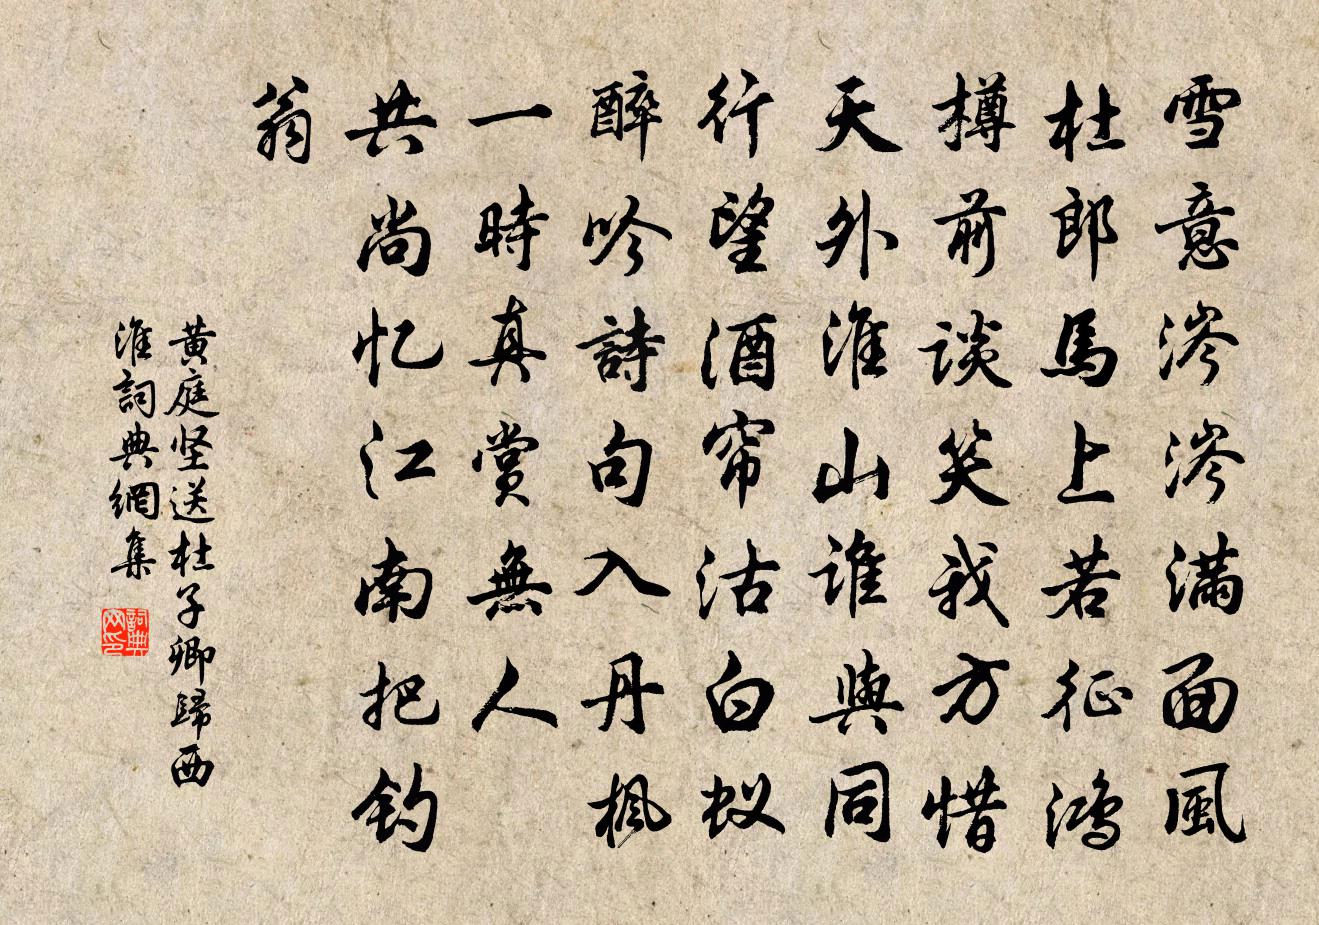 雪意涔涔滿面風
杜郎馬上若征鴻
樽前談笑我方惜
天外淮山誰與同
行望酒帘沽白蚁
醉吟詩句入丹楓
一時真賞無人
共尚忆江南把釣
翁
黄庭坚送杜子卿歸西
淮詞典網集
詞典
网印